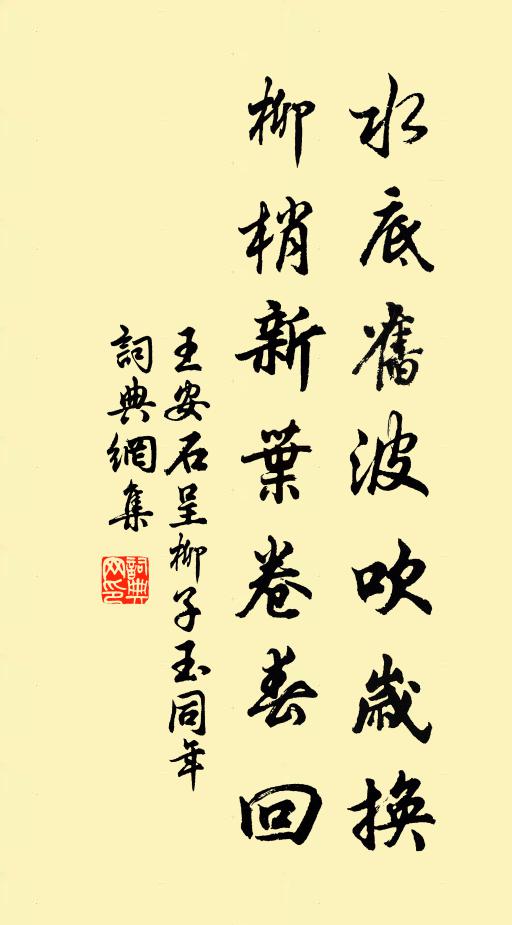 水底舊波吹歲換
柳梢新葉卷春回
王安石呈柳子玉同年
詞典網集
詞典
网印